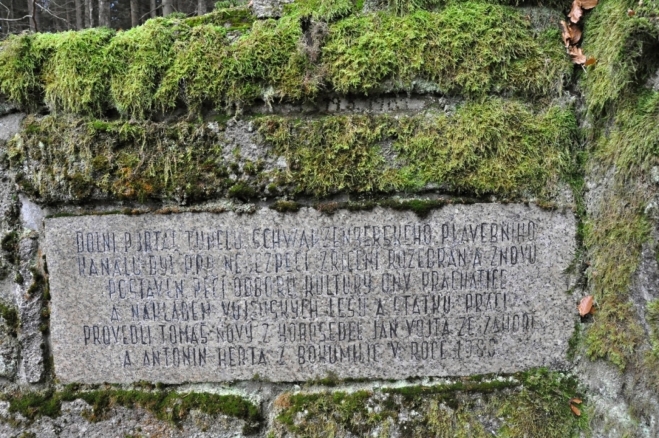 DOLNÍ PORTÁL TUNELU SCHWARZENBERSKÉHO PLAVEBNÍHO
KANÁLU BYL PRO NEBEZPEČÍ ZŘÍCENÍ ROZEBRÁN A ZNOVU
POSTAVEN PÉČÍ ODBORU KULTURY ONV PRACHATICE
A NÁKLADEM VOJENSKÝCH LESŮ A STATKŮ. PRÁCI
PROVEDLI TOMÁŠ NOVÝ Z HOROSEDEL JAN VOJTA ZE ZÁHOŘÍ
A ANTONÍN HERTA Z BOHUMILIC V ROCE